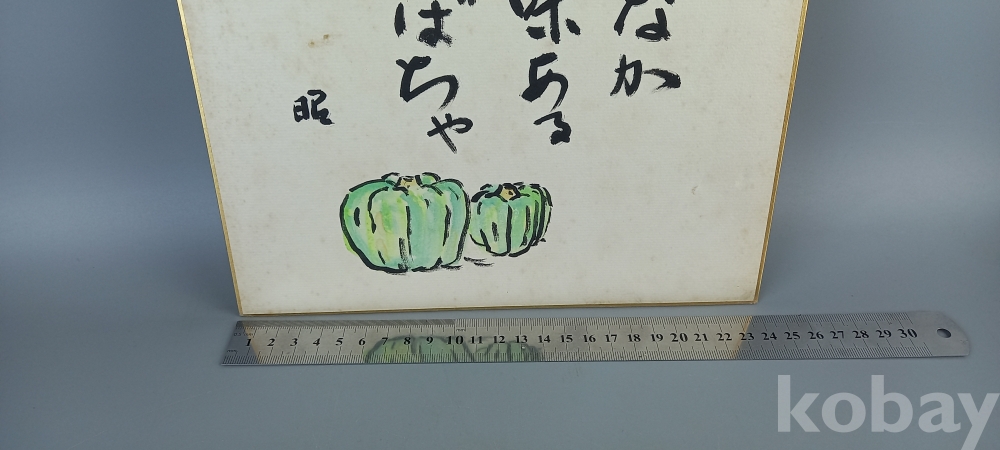 なか
味ある
ばちゃ
昭
1 2 3 4 5 6 7 8 9 10 11 12 13 14 15 16 17 18 19 20 21 22 23 24 25 26 27 28 29 30
kobay